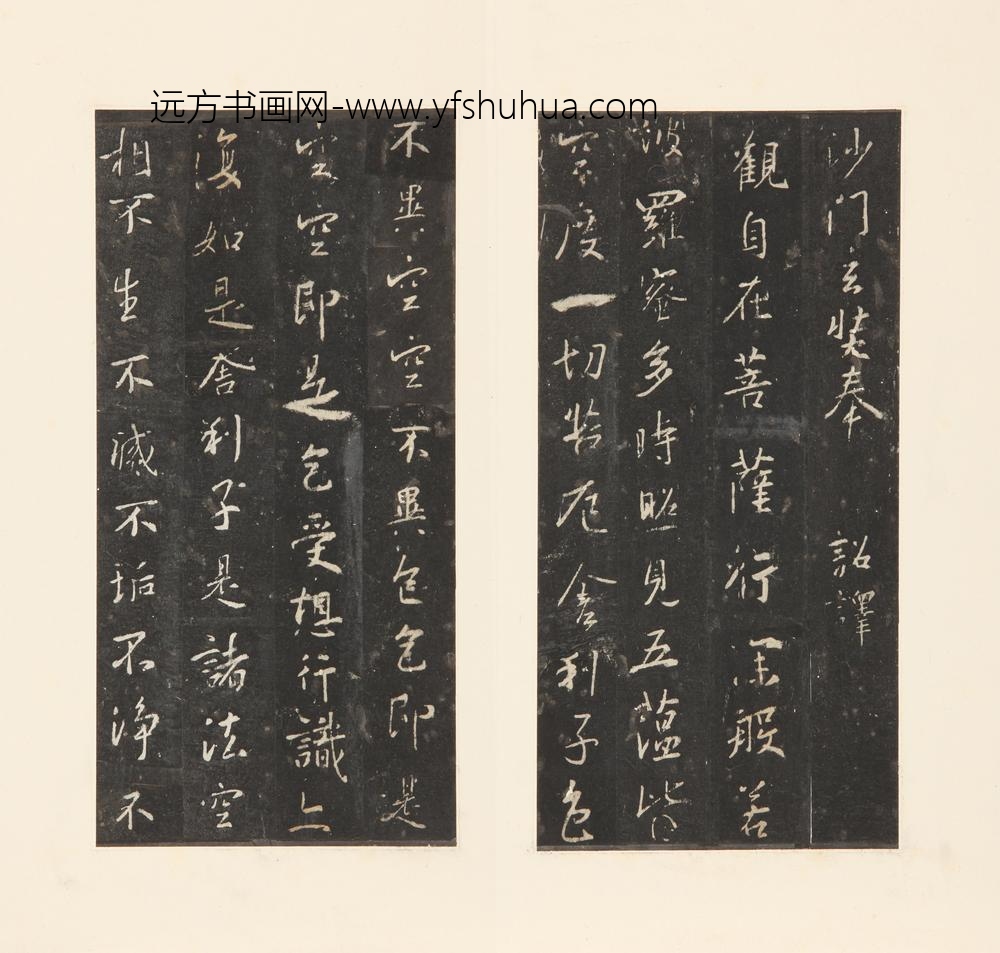 远方书画网-www.yfshuhua.com
沙门玄奘奉 詔譯
觀自在菩薩行深般若
波羅蜜多時照見五蘊皆
空度一切苦厄舍利子色
不異空空不異色色即是
空空即是色受想行識亦
復如是舍利子是諸法空
相不生不滅不垢不淨不